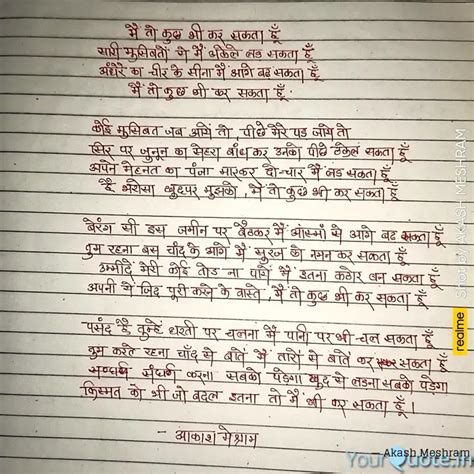 मैं तो कुछ भी कर सकता हूँ
सारी मुसिबतों से मैं अकेले लड सकता हूँ
अंधेरे का चीर के सीना मैं आगे बढ सकता हूँ
मैं तो कुछ भी कर सकता हूँ.
कोई मुसिबत जब आयें तो, पीछे मेरे पड जाये तो
सिर पर जुनून का सेहरा बांधकर उनको पीछे ढकेल सकता हूँ
अपने मेहनत का पंजा मारकर दो-चार मैं लड सकता हूँ
है भरोसा खुदपर मुझको, मैं तो कुछ भी कर सकता हूँ
बेरंग सी इस जमीन पर बैठकर मैं आस्मां से आगे बढ सकता हूँ
तुम रहना बस चाँद के आगे मैं सुरज को नमन कर सकता हूँ
उम्मीदें मेरी कोई तोड ना पायें मैं इतना कठोर बन सकता हूँ
अपनी ये जिद पूरी करने के वास्ते, मैं तो कुछ भी कर सकता हूँ
पसंद है तुम्हें धरती पर चलना मैं पानी पर भी चल सकता हूँ
तुम करते रहना चाँद से बातें मैं तारों से बातें कर सकता हूँ
संघर्ष करना सबको पडेगा खुद से लडना सबको पडेगा
किस्मत को भी जो बदल इतना तो मैं भी कर सकता हूँ।
- आकाश मेश्राम
realme
Shot by AKASH MESHRAM
Akash Meshram
YourQuote.in